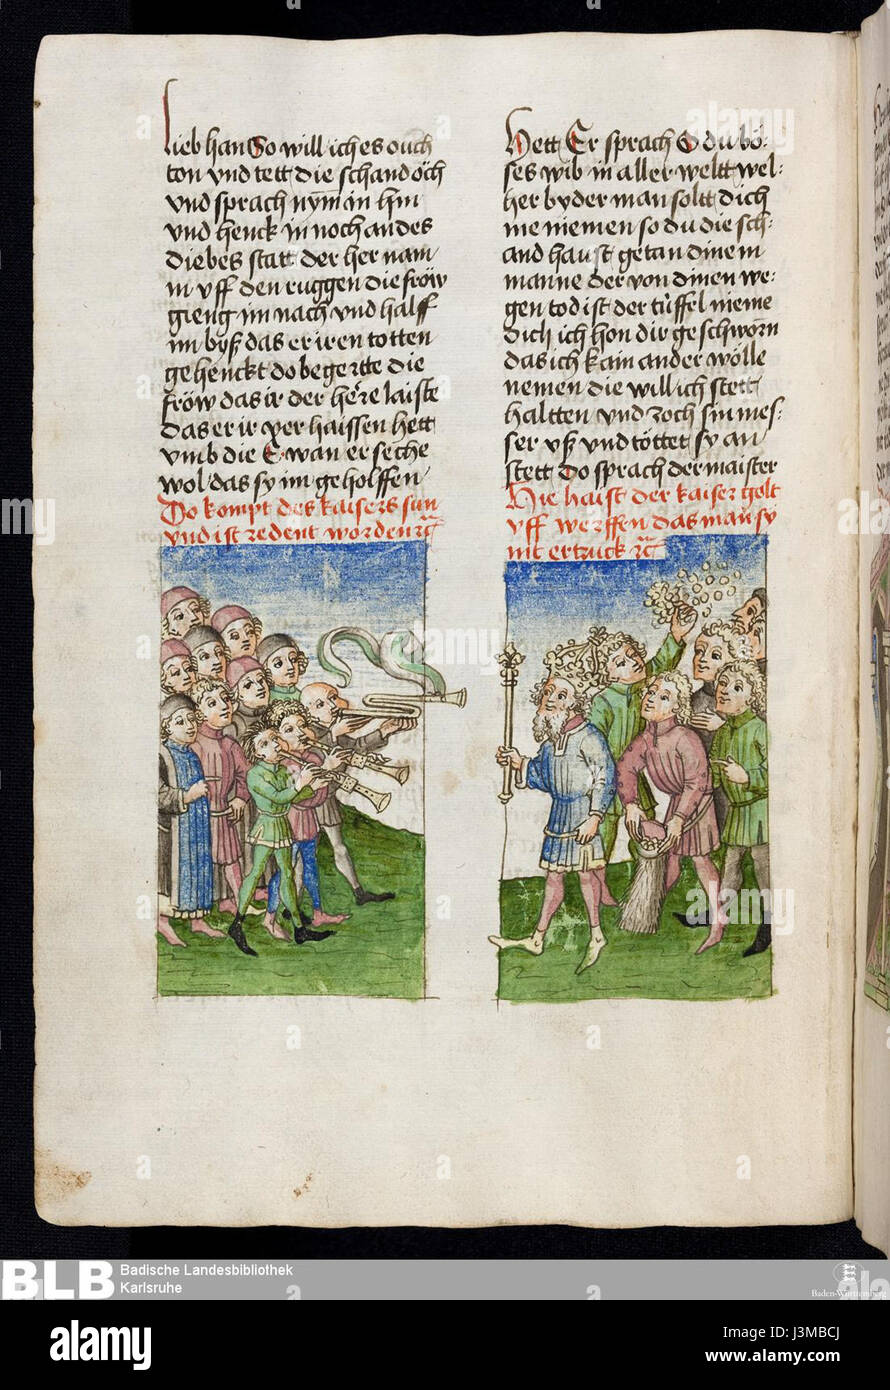 lieb han So will ich es ouch
ton vnd tett die schand öch
vnd sprach nym in hin
vnd henck in noch an des
diebes statt der her nam
in vff den ruggen die fröw
gieng im nach vnd halff
im byß das er iren totten
gehenckt do begertte die
fröw das ir der here laiste
das er ir verhaissen hett
vmb die E wan er seche
wol das sy im geholffen
Do kompt des kaisers sun
vnd ist redent worden
hett Er sprach O du bö-
ses wib in aller weltt wel-
her byderman soltt dich
me niemen so du die sch-
and haust getan dinem
manne der von dinen we-
gen tod ist der tüffel nieme
dich ich hon dir geschworn
das ich kain ander wölle
nemen die will ich stett
haltten vnd zoch sin mes-
ser vß vnd töttet sy an
stett Do sprach der maister
Hie haist der kaiser golt
vff werffen das man sy
nit ertruck
BLB
Badische Landesbibliothek
Karlsruhe
Baden-Württemberg
alamy
Image ID: J3MBCJ
www.alamy.com